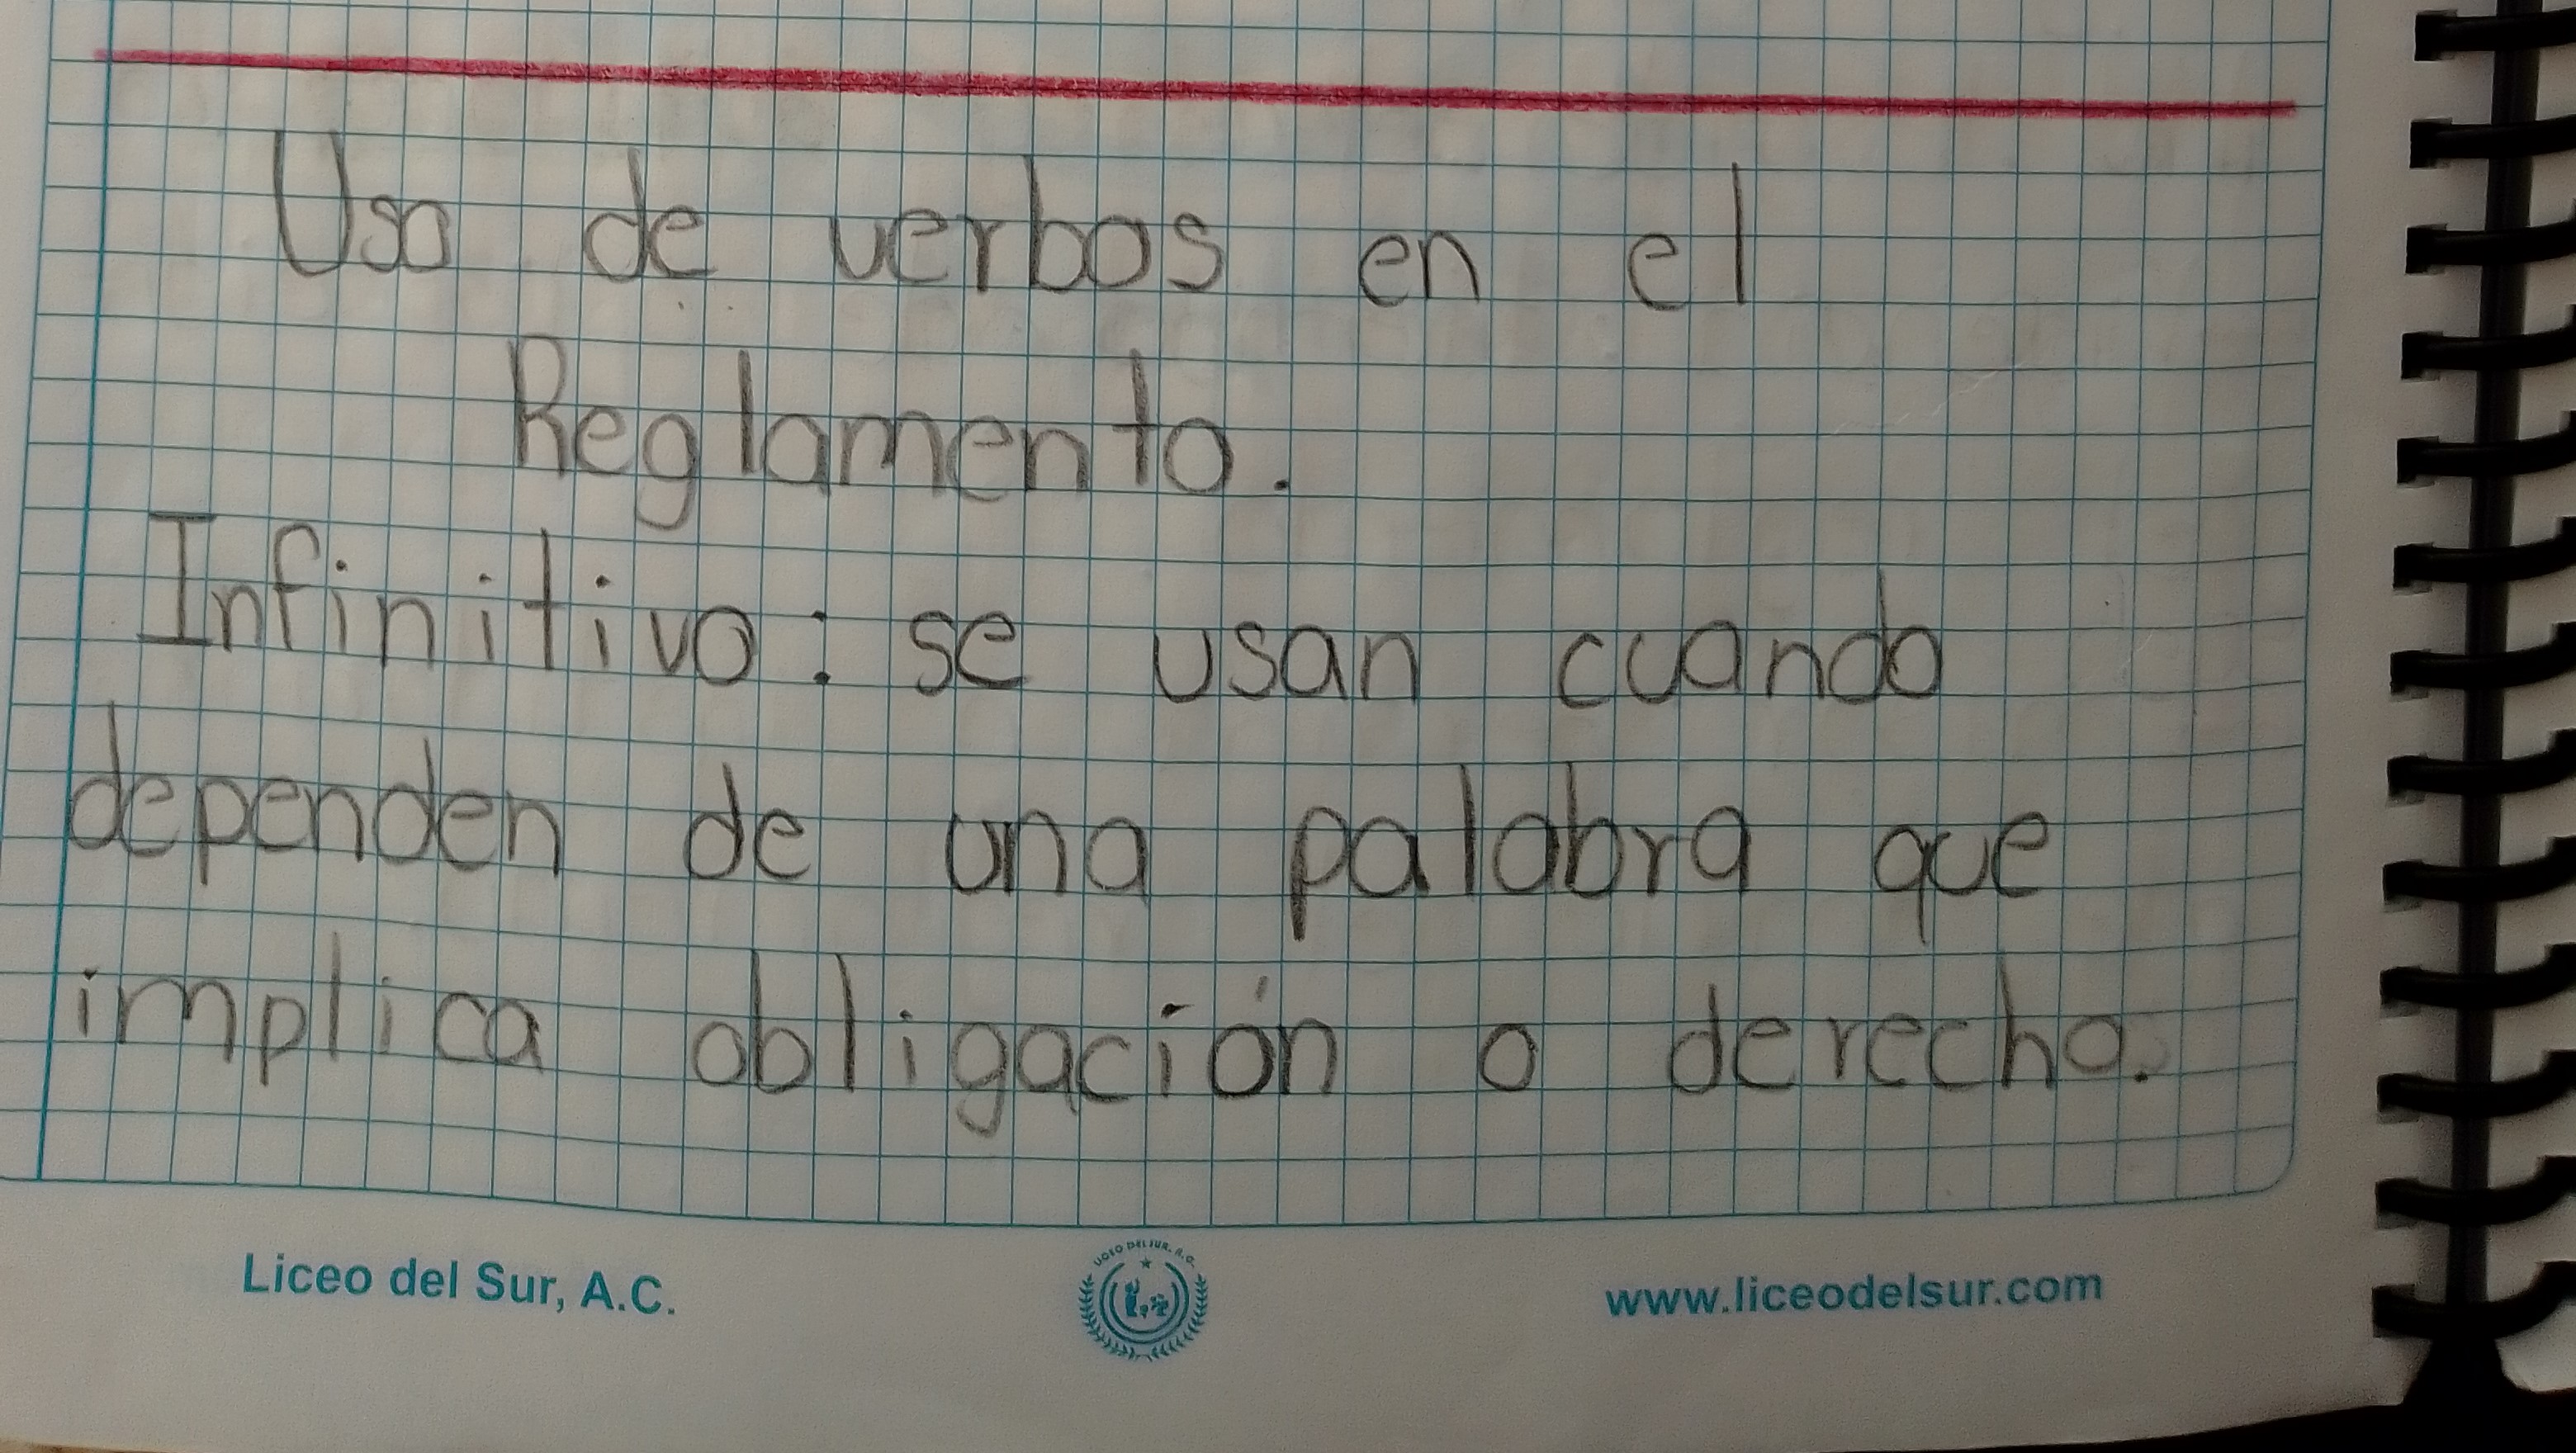 Uso de verbos en el
Reglamento.
Infinitivo: se usan cuando
dependen de una palabra que
implica obligación o derecho.
Liceo del Sur, A.C.
LICEO DEL SUR, A.C.
www.liceodelsur.com